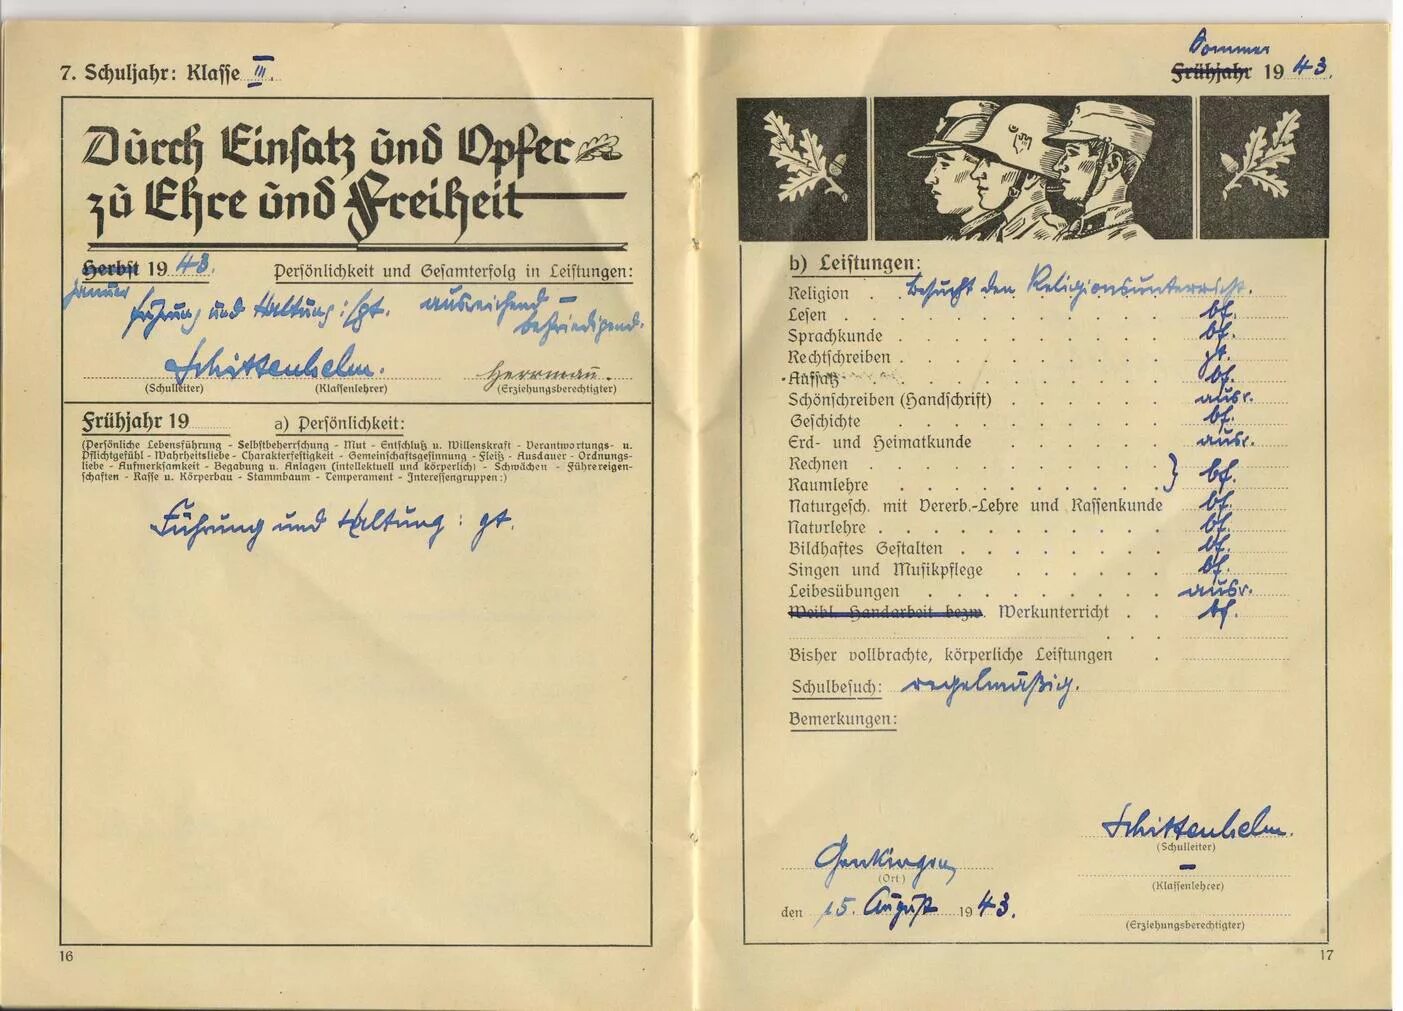 7. Schuljahr: Klasse III.
Durch Einsatz und Opfer
zu Ehre und Freiheit
Herbst 19 43. Persönlichkeit und Gesamterfolg in Leistungen:
Januar
Führung und Haltung: gt. ausreichend –
befriedigend.
Schittenhelm. Herrmann.
(Schulleiter) (Klassenlehrer) (Erziehungsberechtigter)
Frühjahr 19 a) Persönlichkeit:
(Persönliche Lebensführung - Selbstbeherrschung - Mut - Entschluß u. Willenskraft - Verantwortungs- u.
Pflichtgefühl - Wahrheitsliebe - Charakterfestigkeit - Gemeinschaftsgesinnung - Fleiß - Ausdauer - Ordnungs-
liebe - Aufmerksamkeit - Begabung u. Anlagen (intellektuell und körperlich) - Schwächen - Führereigen-
schaften - Rasse u. Körperbau - Stammbaum - Temperament - Interessengruppen:)
Führung und Haltung: gt.
16
Sommer
Frühjahr 19 43.
b) Leistungen:
Religion . besucht den Religionsunterricht.
Lesen bf.
Sprachkunde bf.
Rechtschreiben gt.
Aufsatz bf.
Schönschreiben (Handschrift) ausr.
Geschichte bf.
Erd- und Heimatkunde ausr.
Rechnen
Raumlehre } bf.
Naturgesch. mit Vererb.-Lehre und Rassenkunde bf.
Naturlehre bf.
Bildhaftes Gestalten bf.
Singen und Musikpflege bf.
Leibesübungen ausr.
Weibl. Handarbeit bezw. Werkunterricht bf.
Bisher vollbrachte, körperliche Leistungen
Schulbesuch: regelmäßig.
Bemerkungen:
Schittenhelm.
(Schulleiter)
Genkingen
(Ort)
–
(Klassenlehrer)
den 15. August 19 43.
(Erziehungsberechtigter)
17